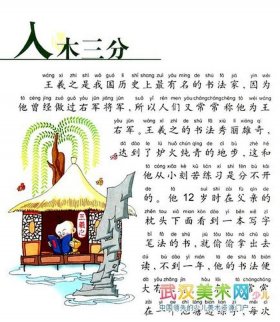 入木三分
wáng xī zhī shì wǒ guó lì shǐ shang zuì yǒu míng de shū fǎ jiā yīn wèi
王羲之是我国历史上最有名的书法家，因为
tā céng jīng zuò guò yòu jūn jiāng jūn suǒ yǐ rén men yòu cháng cháng chēng tā wéi wáng
他曾经做过右军将军，所以人们又常常称他为王
yòu jūn wáng xī zhī de shū fǎ xiù lì xióng qí
右军。王羲之的书法秀丽雄奇，
dá dào le lú huǒ chún qīng de dì bù zhè hé
达到了炉火纯青的地步，这和
tā cóng xiǎo kè kǔ liàn xí shì fēn bù kāi
他从小刻苦练习是分不开
de tā suì shí zài fù qīn
的。他12岁时在父亲
zhěn tou xià mian kàn dào yī běn xiě zì
枕头下面看到一本写字
bǐ fǎ de shū jiù tōu tōu ná lái
笔法的书，就偷偷拿来
dú bù dào yī nián tā de shū fǎ biàn
读，不到一年，他的书法便
武汉美术网
中国领先的少儿美术资源门户